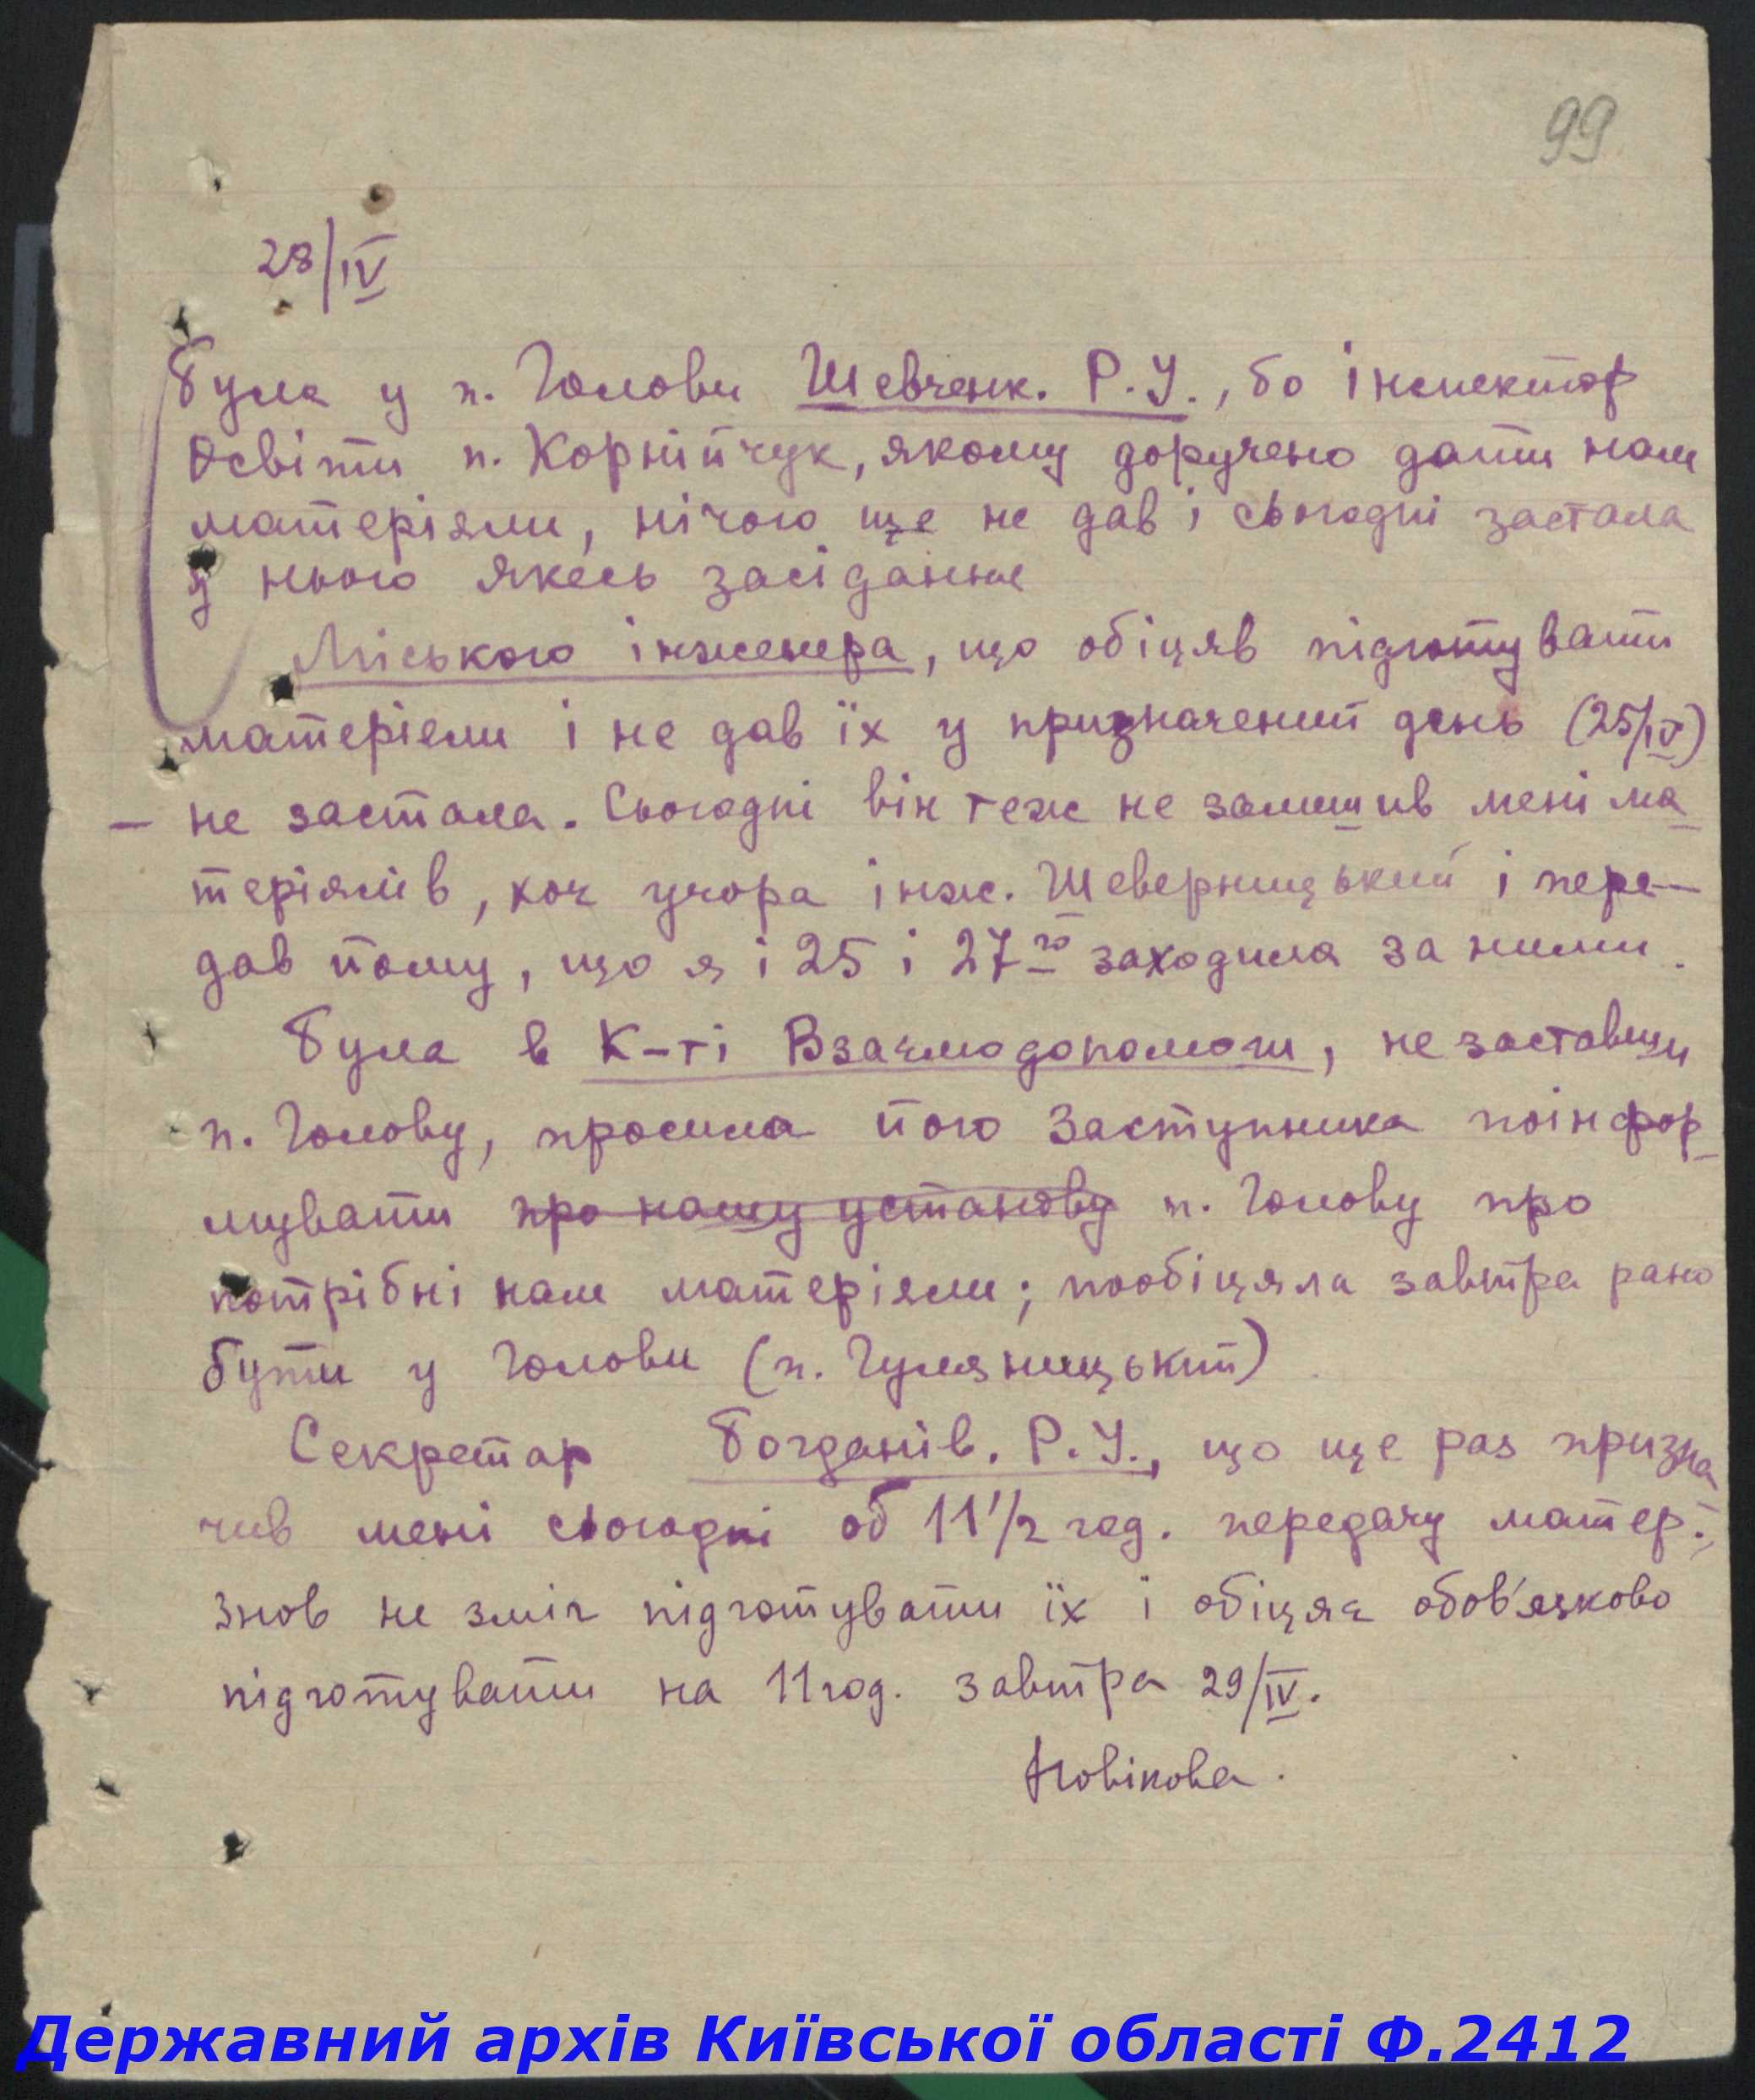 99
28/IV
Була у п. Голови Шевченк. Р.У., бо інспектор
Освіти п. Корнійчук, якому доручено дати нам
матеріяли, нічого ще не дав і сьогодні застала
у нього якесь засідання
Міського інженера, що обіцяв підготувати
матеріяли і не дав їх у призначений день (25/IV)
– не застала. Сьогодні він теж не залишив мені ма-
теріялів, хоч учора інж. Шеверницький і пере-
дав йому, що я і 25 і 27го заходила за ними.
Була в К-ті Взаємодопомоги, не заставши
п. Голову, просила його Заступника поінфор-
мувати про нашу установу п. Голову про
потрібні нам матеріяли; пообіцяла завтра рано
бути у Голови (п. Гуляницький)
Секретар Богданів. Р.У., що ще раз призна-
чив мені сьогодні об 11 1/2 год. передачу матер.,
знов не зміг підготувати їх і обіцяє обов'язково
підготувати на 11 год. завтра 29/IV.
Новікова.
Державний архів Київської області Ф.2412